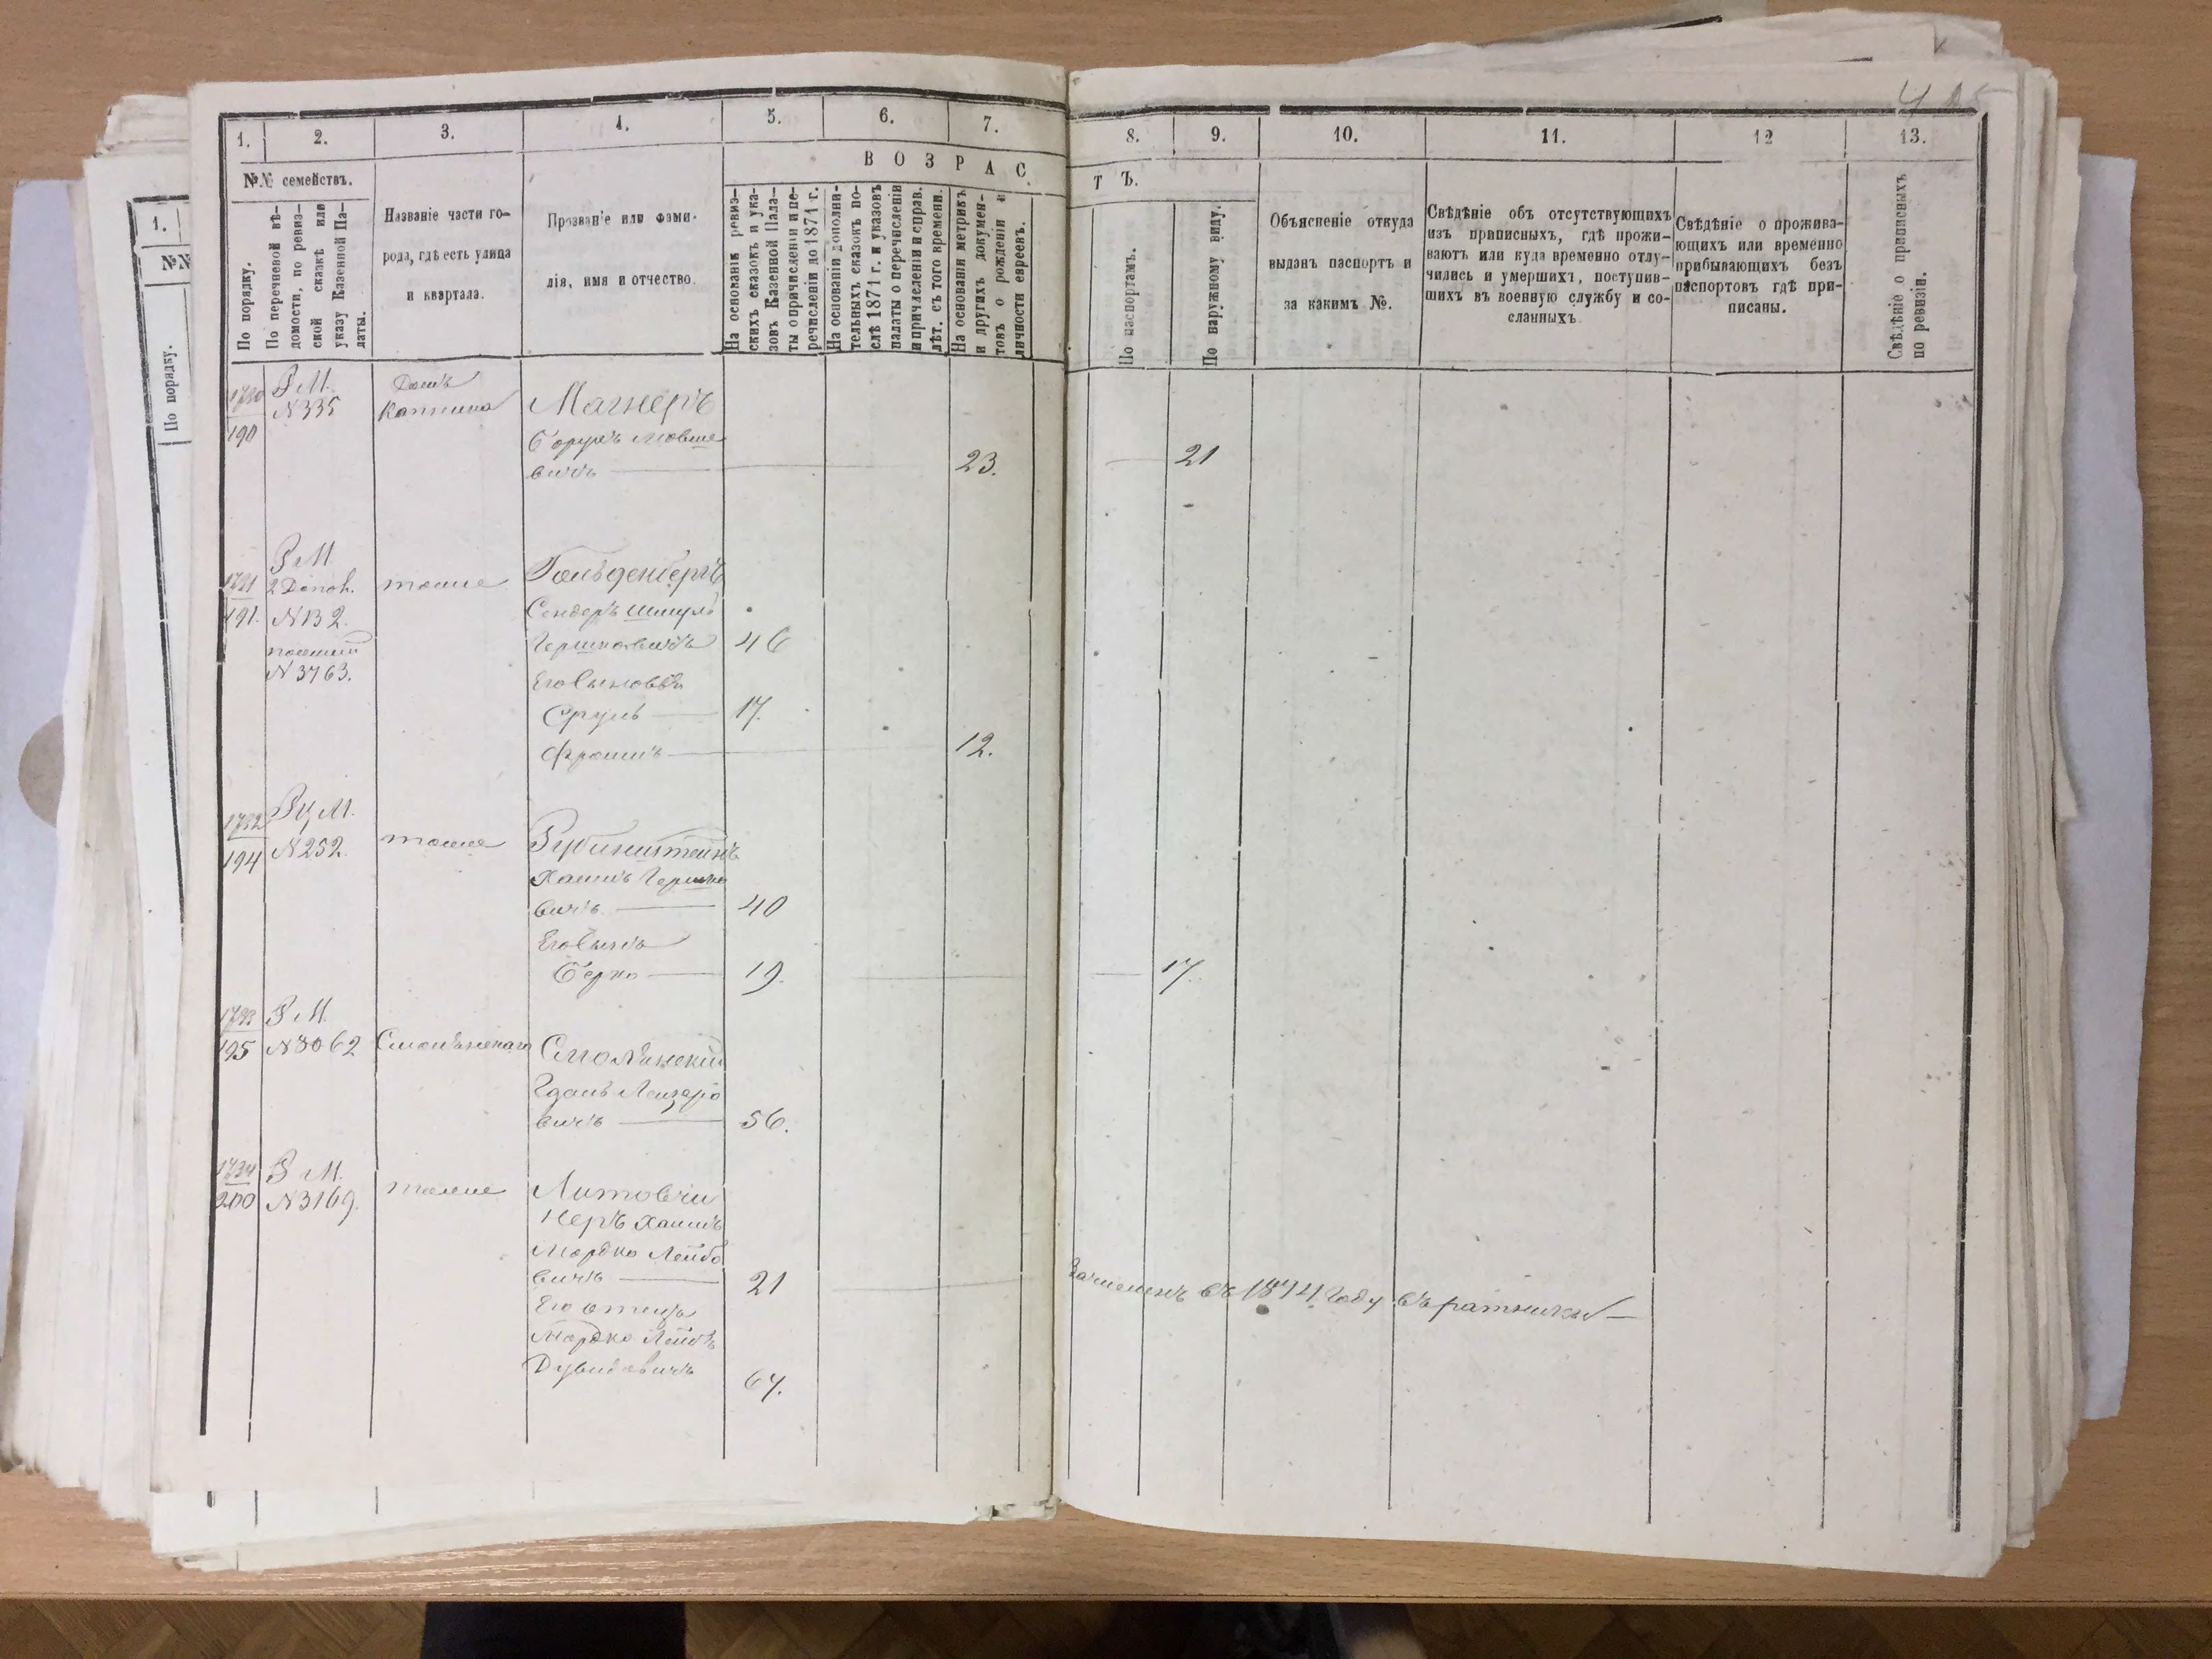 1.
№№
По порядку.
4
1.
2.
3.
4.
5.
6.
7.
8.
9.
10.
11.
12
13.
№№ семействъ.
В О З Р А С
Т Ъ.
По порядку.
По перечневой вѣ-
домости, по ревиз-
ской сказкѣ или
указу Казенной Па-
латы.
Названіе части го-
рода, гдѣ есть улица
и квартала.
Прозваніе или фами-
лія, имя и отчество.
На основаніи ревиз-
скихъ сказокъ и ука-
зовъ Казенной Пала-
ты о причисленіи и пе-
речисленіи до 1871 г.
На основаніи дополни-
тельныхъ сказокъ по-
слѣ 1871 г. и указовъ
палаты о перечисленіи
и причисленіи и справ.
лѣт. съ того времени.
На основаніи метрикъ
и другихъ докумен-
товъ о рожденіи и
личности евреевъ.
По паспортамъ.
По наружному виду.
Объясненіе откуда
выданъ паспортъ и
за какимъ №.
Свѣдѣніе объ отсутствующихъ
изъ приписныхъ, гдѣ прожи-
ваютъ или куда временно отлу-
чились и умершихъ, поступив-
шихъ въ военную службу и со-
сланныхъ
Свѣдѣніе о прожива-
ющихъ или временно
прибывающихъ безъ
паспортовъ гдѣ при-
писаны.
Свѣдѣніе о приписныхъ
по ревизіи.
1730
190
Р М.
N 335
Домъ
Магнеръ
Борухъ Мовше
вичъ — 23. — 21
1731
191.
Р М
2 Допол.
N 132.
N 3763.
тоже
Гольденбергъ
Сендеръ Шмуль
Гершковичъ 46
Его Сыновья
Сруль — 17.
Фроимъ — 12.
1732
194
Рц М.
N 252.
тоже
Рубинштейнъ
Хаимъ Гершко
вичъ — 40
Его Сынъ
Берко — 19. — 17.
1733
195
Р М.
N 3062
Смолянскаго
Смолянскій
Гдаль Лейзеро
вичъ — 56.
1734
200
Р М.
N 3169.
тоже
Литовчи
неръ Хаимъ
Мордко Лейбо
вичъ — 21 — Зачисленъ въ 1874 году въ ратники —
Его отецъ
Мордко Лейбъ
Дувидовичъ 64.